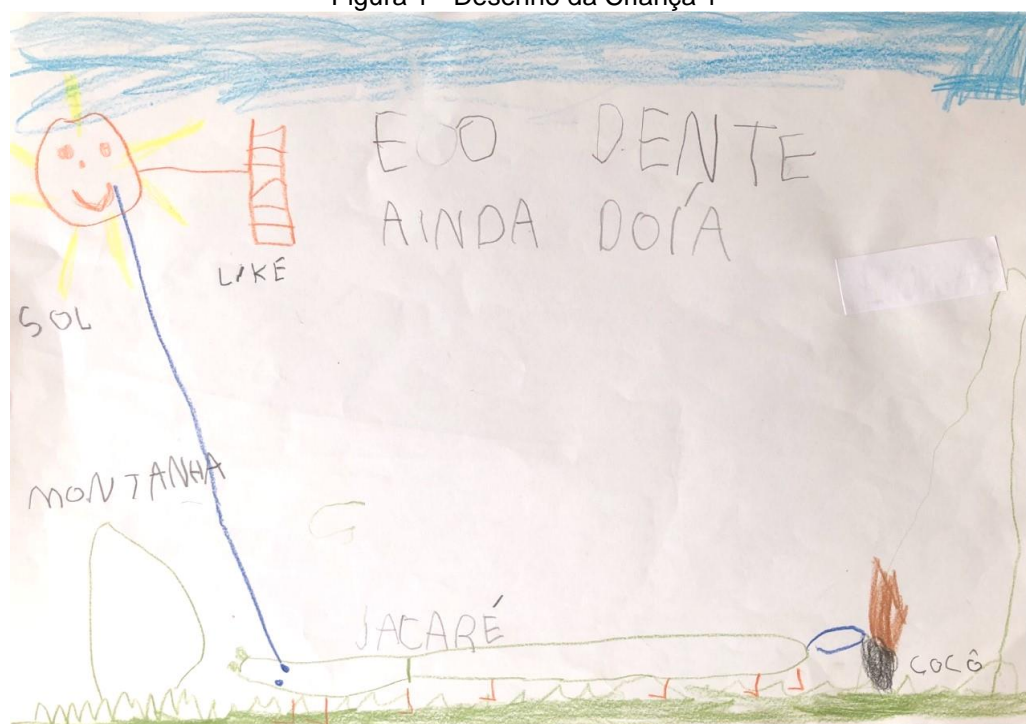 Figura 1 - Desenho da Criança 1
E O O DENTE
AINDA DOÍA
LIKE
SOL
MONTANHA
G
JACARÉ
COCÔ